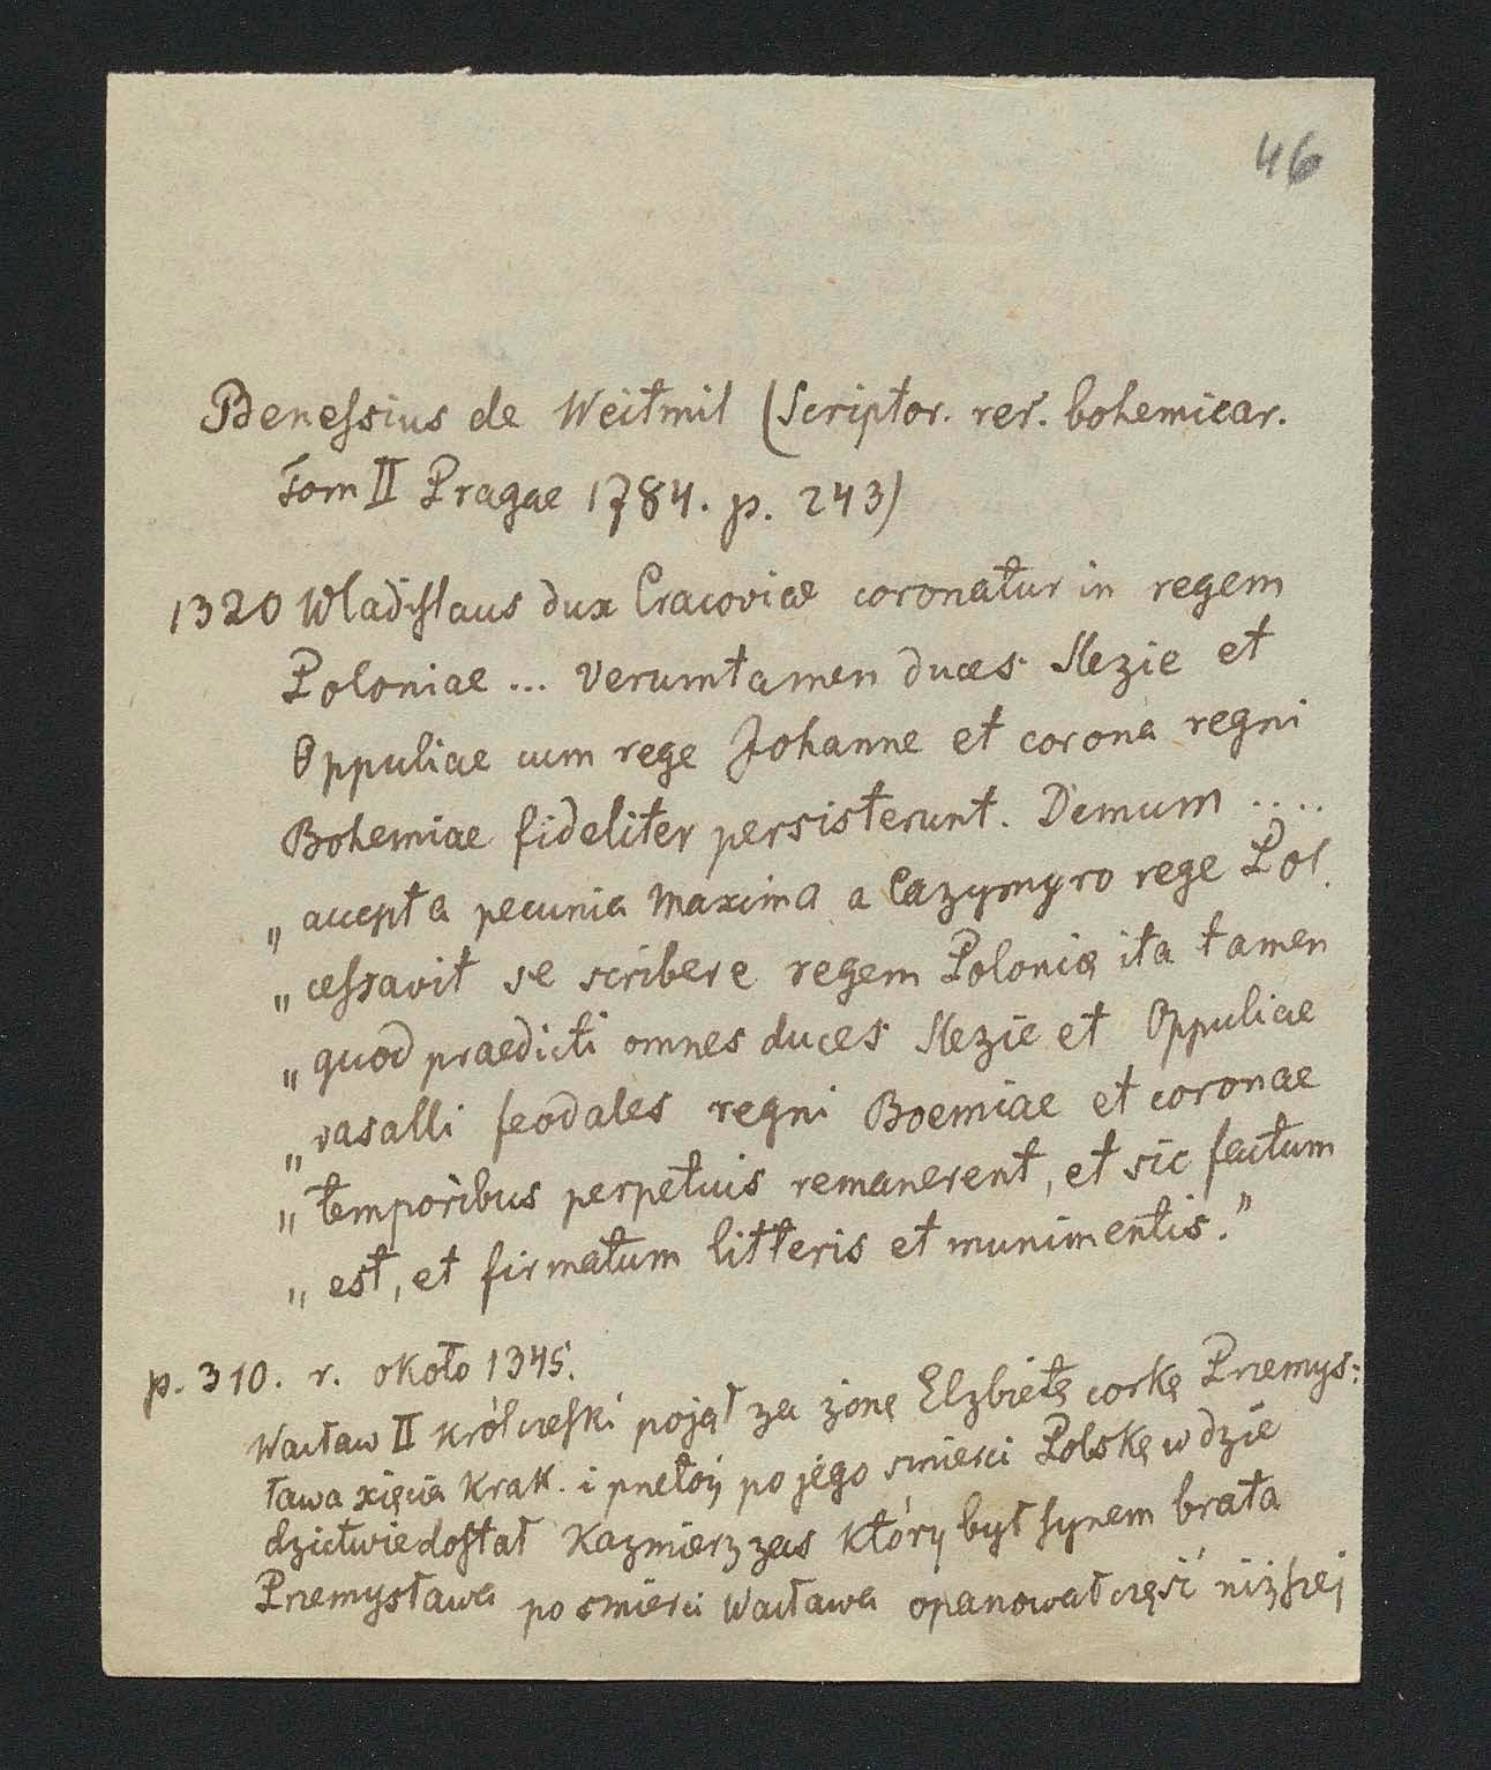 46
Beneſsius de Weitmil (Scriptor. rer. bohemicar.
Tom II Pragae 1784. p. 243)
1320 Wladiſlaus dux Cracoviæ coronatur in regem
Poloniae ... verumtamen duces Slezie et
Oppuliae cum rege Johanne et corona regni
Bohemiae fideliter persisterunt. Demum ....
„ accepta pecunia maxima a Cazymyro rege Pol.
„ ceſsavit se scribere regem Polonię ita tamen
„ quod praedicti omnes duces Slezie et Oppuliae
„ vasalli feodales regni Boemiae et coronae
„ temporibus perpetuis remanerent, et sic factum
„ est, et firmatum litteris et munimentis."
p. 310. r. około 1345.
Wacław II król czeſki pojął za żonę Elzbietę corkę Przemys:
ława xięcia Krak. i przetoż po jego smierci Polskę w dzie
dzictwie doſtał Kazmierz zas który był ſynem brata
Przemysława po smierci Wacława opanował część niżſzej